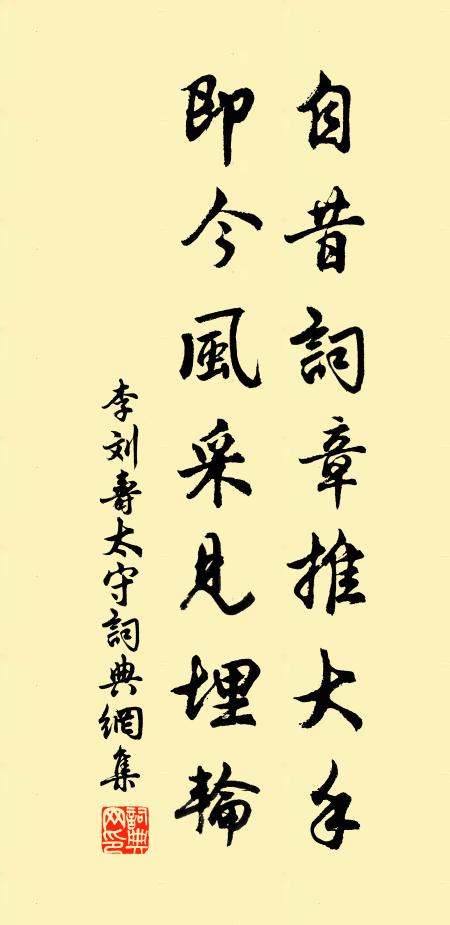 自昔詞章推大手
即今風采見埋輪
李刘壽太守詞典網集
詞典网印